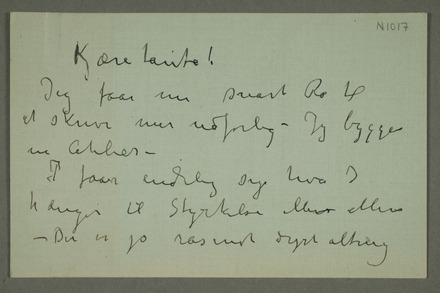 N1017
Kjære tante!
Jeg faar nu snart Ro til
at skrive mer udførlig – Jeg bygger
nu Atelier –
I faar endelig sige hva I
trænger til Styrkelse
– Det er jo rasende dyrt alting